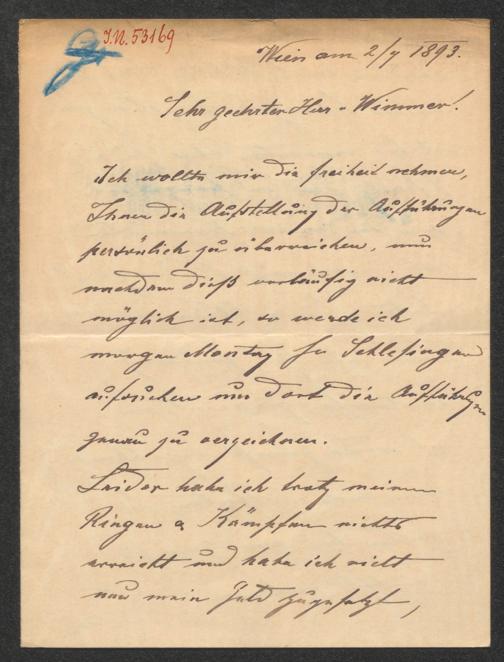 J.N. 53169
Wien am 2/7 1893.
Sehr geehrter Herr Wimmer!
Ich wollte mir die freiheit nehmen,
Ihnen die Aufstellung der Aufführungen
persönlich zu überreichen, nun
nachdem dieß vorläufig nicht
möglich ist, so werde ich
morgen Montag Schlesinger
aufsuchen um dort die
genau zu verzeichnen.
Leider habe ich trotz meinem
Ringen & Kämpfen nichts
erreicht und habe ich nicht
nur mein Geld zugesetzt,